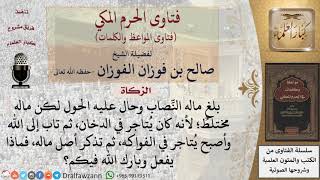 فتاوى الحرم المكي
(فتاوى المواعظ والكلمات)
لفضيلة الشيخ
صالح بن فوزان الفوزان - حفظه الله تعالى
الزكاة
بلغ ماله النصاب وحال عليه الحول لكن ماله
مختلط؛ لأنه كان يتاجر في الدخان، ثم تاب إلى الله
وأصبح يتاجر في الفواكه، ثم تذكر أصل ماله، فماذا
يفعل وبارك الله فيكم؟
كبار العلماء
سلسلة الفتاوى من
الكتب والمتون العلمية
وشروحها الصوتية
Dralfawzann